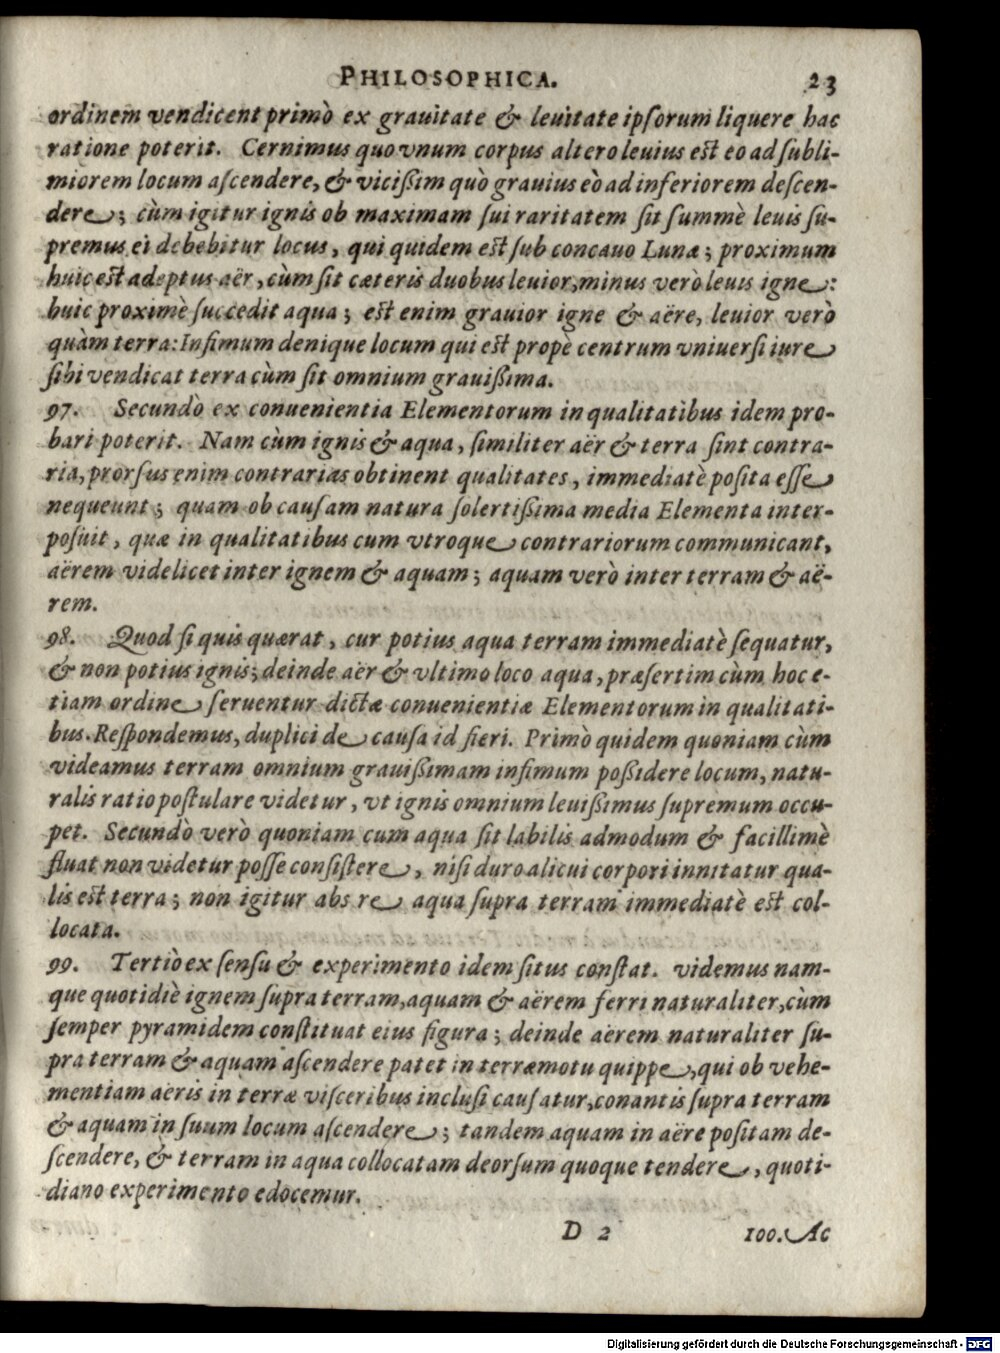 PHILOSOPHICA. 23
ordinem vendicent primò ex grauitate & leuitate ipſorum liquere hac
ratione poterit. Cernimus quo vnum corpus altero leuius est eo ad ſubli-
miorem locum aſcendere, & viciſſim quò grauius eò ad inferiorem deſcen-
dere; cùm igitur ignis ob maximam ſui raritatem ſit ſummè leuis ſu-
premus ei debebitur locus, qui quidem est ſub concauo Lunæ; proximum
huic est adeptus aër, cùm ſit cæteris duobus leuior, minus verò leuis igne:
huic proximè ſuccedit aqua; est enim grauior igne & aëre, leuior verò
quàm terra: Infimum denique locum qui est propè centrum vniuerſi iure
ſibi vendicat terra cùm ſit omnium grauiſſima.
97. Secundò ex conuenientia Elementorum in qualitatibus idem pro-
bari poterit. Nam cùm ignis & aqua, ſimiliter aër & terra ſint contra-
ria, prorſus enim contrarias obtinent qualitates, immediatè poſita eſſe
nequeunt; quam ob cauſam natura ſolertiſſima media Elementa inter-
poſuit, quæ in qualitatibus cum vtroque contrariorum communicant,
aërem videlicet inter ignem & aquam; aquam verò inter terram & aë-
rem.
98. Quod ſi quis quærat, cur potius aqua terram immediatè ſequatur,
& non potius ignis; deinde aër & vltimo loco aqua, præſertim cùm hoc e-
tiam ordine ſeruentur dictæ conuenientiæ Elementorum in qualitati-
bus. Reſpondemus, duplici de cauſa id fieri. Primò quidem quoniam cùm
videamus terram omnium grauiſſimam infimum poſſidere locum, natu-
ralis ratio poſtulare videtur, vt ignis omnium leuiſſimus ſupremum occu-
pet. Secundò verò quoniam cum aqua ſit labilis admodum & facillimè
fluat non videtur poſſe conſiſtere, niſi duro alicui corpori innitatur qua-
lis est terra; non igitur abs re aqua ſupra terram immediatè est col-
locata.
99. Tertiò ex ſenſu & experimento idem ſitus conſtat. videmus nam-
que quotidiè ignem ſupra terram, aquam & aërem ferri naturaliter, cùm
ſemper pyramidem conſtituat eius figura; deinde aërem naturaliter ſu-
pra terram & aquam aſcendere patet in terræmotu quippe, qui ob vehe-
mentiam aëris in terræ viſceribus incluſi cauſatur, conantis ſupra terram
& aquam in ſuum locum aſcendere; tandem aquam in aëre poſitam de-
ſcendere, & terram in aqua collocatam deorſum quoque tendere, quoti-
diano experimento edocemur.
D 2 100. Ac
Digitalisierung gefördert durch die Deutsche Forschungsgemeinschaft - DFG